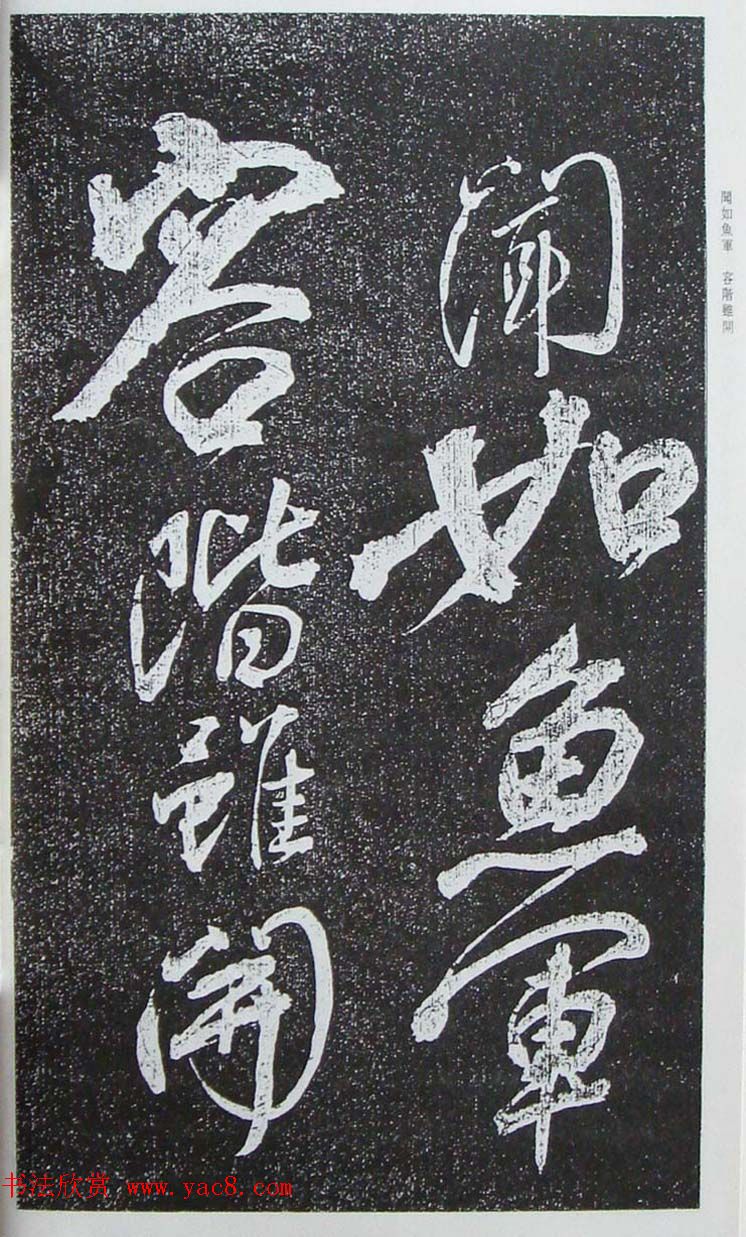 聞如魚軍
容階雖開
聞如魚軍 容階雖開
书法欣赏 www.yac8.com